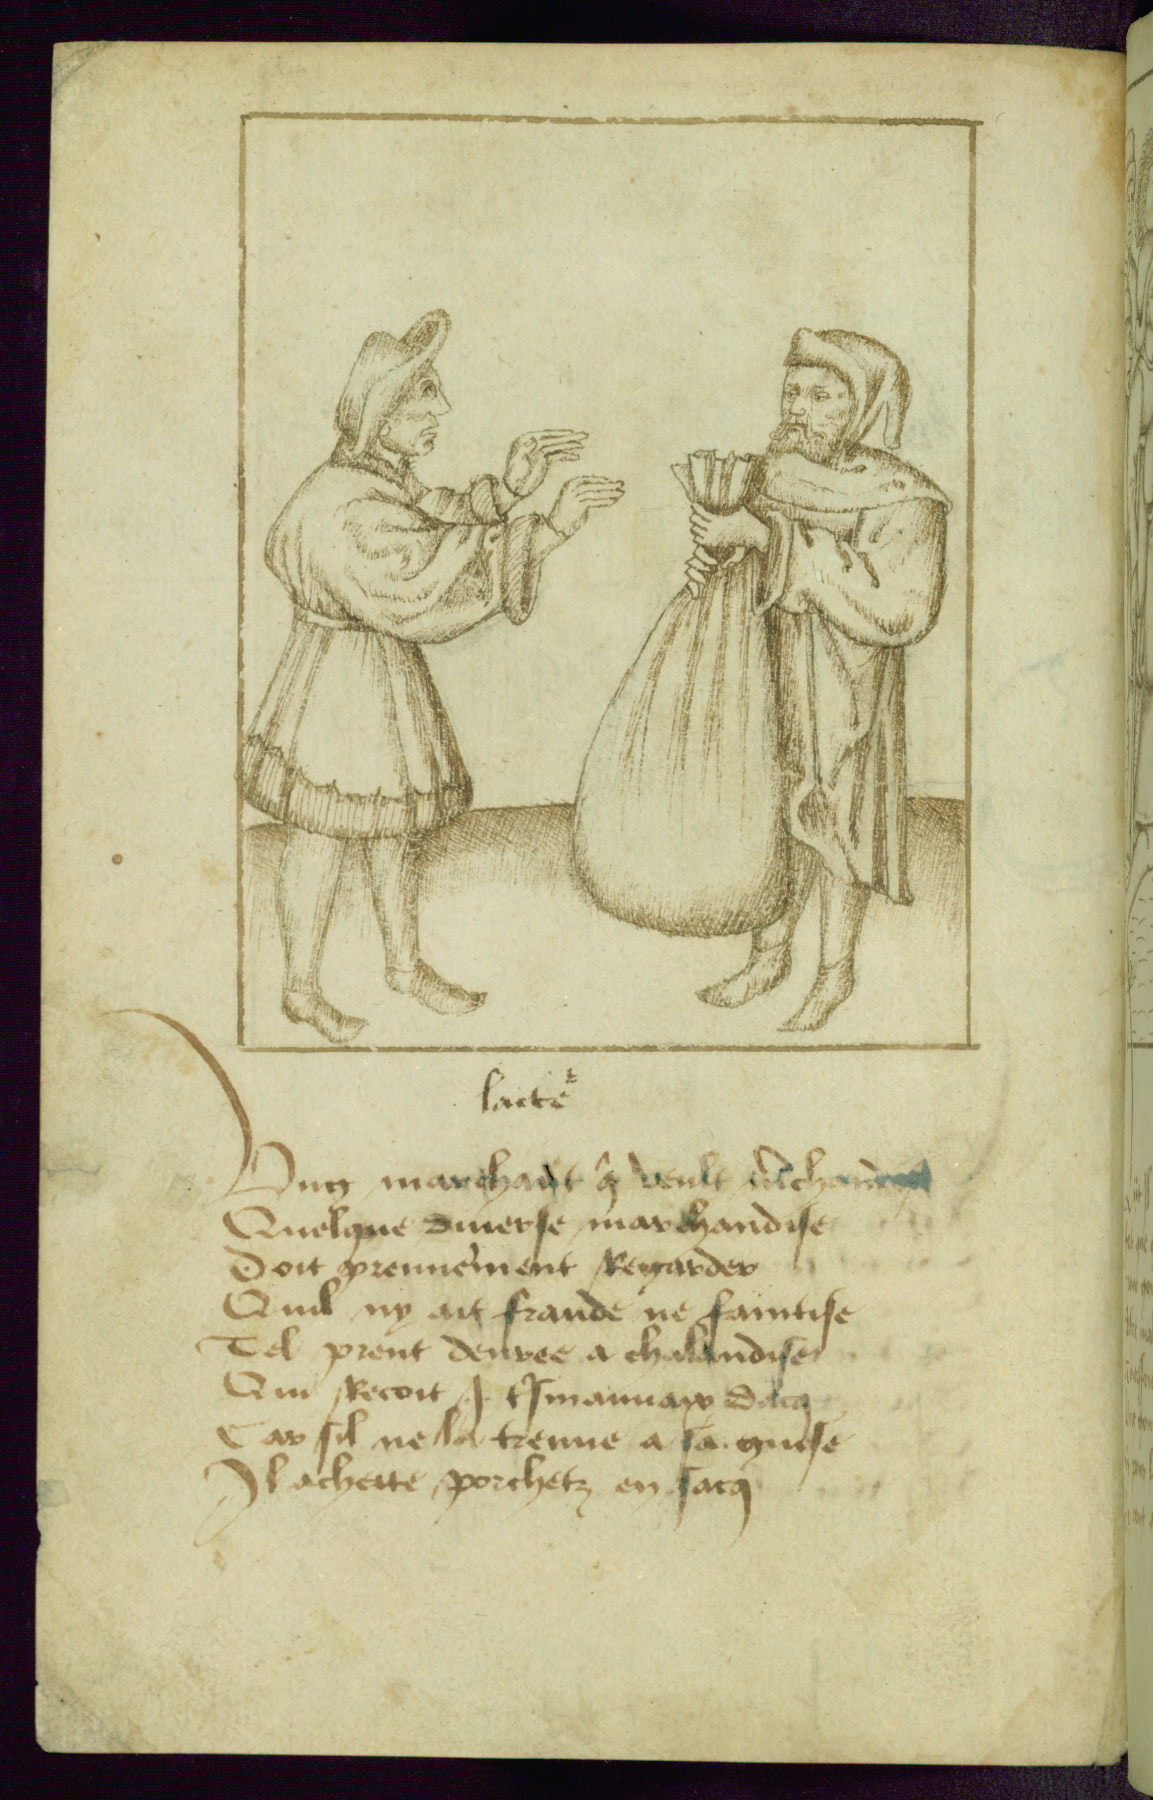 lacte^r
Ung marchant q̃ veult m̃chander
Quelque diverse marchandise
Doit premiem̃ent Regarder
Quil ny ait fraude ne faintise
Tel prent denree a chalandise
Qui Recoit
Car sil ne la treuue a sa guise
Il achette porchetz en sacq